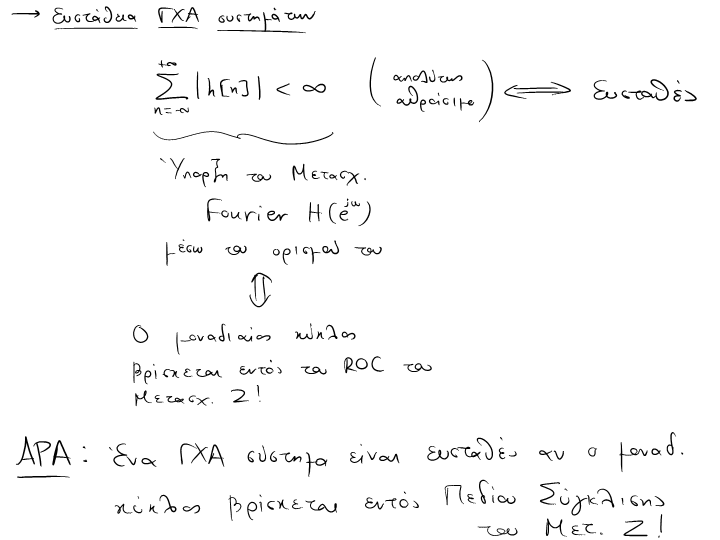 → Ευστάθεια ΓΧΑ συστημάτων
+∞
∑ |h[n]| < ∞ (απολύτως αθροίσιμη) ⟺ Ευσταθές
n=-∞
Ύπαρξη του Μετασχ.
Fourier H(e^{jω})
μέσω του ορισμού του
⇕
Ο μοναδιαίος κύκλος
βρίσκεται εντός του ROC του
Μετασχ. Z!
ΑΡΑ: Ένα ΓΧΑ σύστημα είναι ευσταθές αν ο μοναδ.
κύκλος βρίσκεται εντός Πεδίου Σύγκλισης
του Μετ. Z!